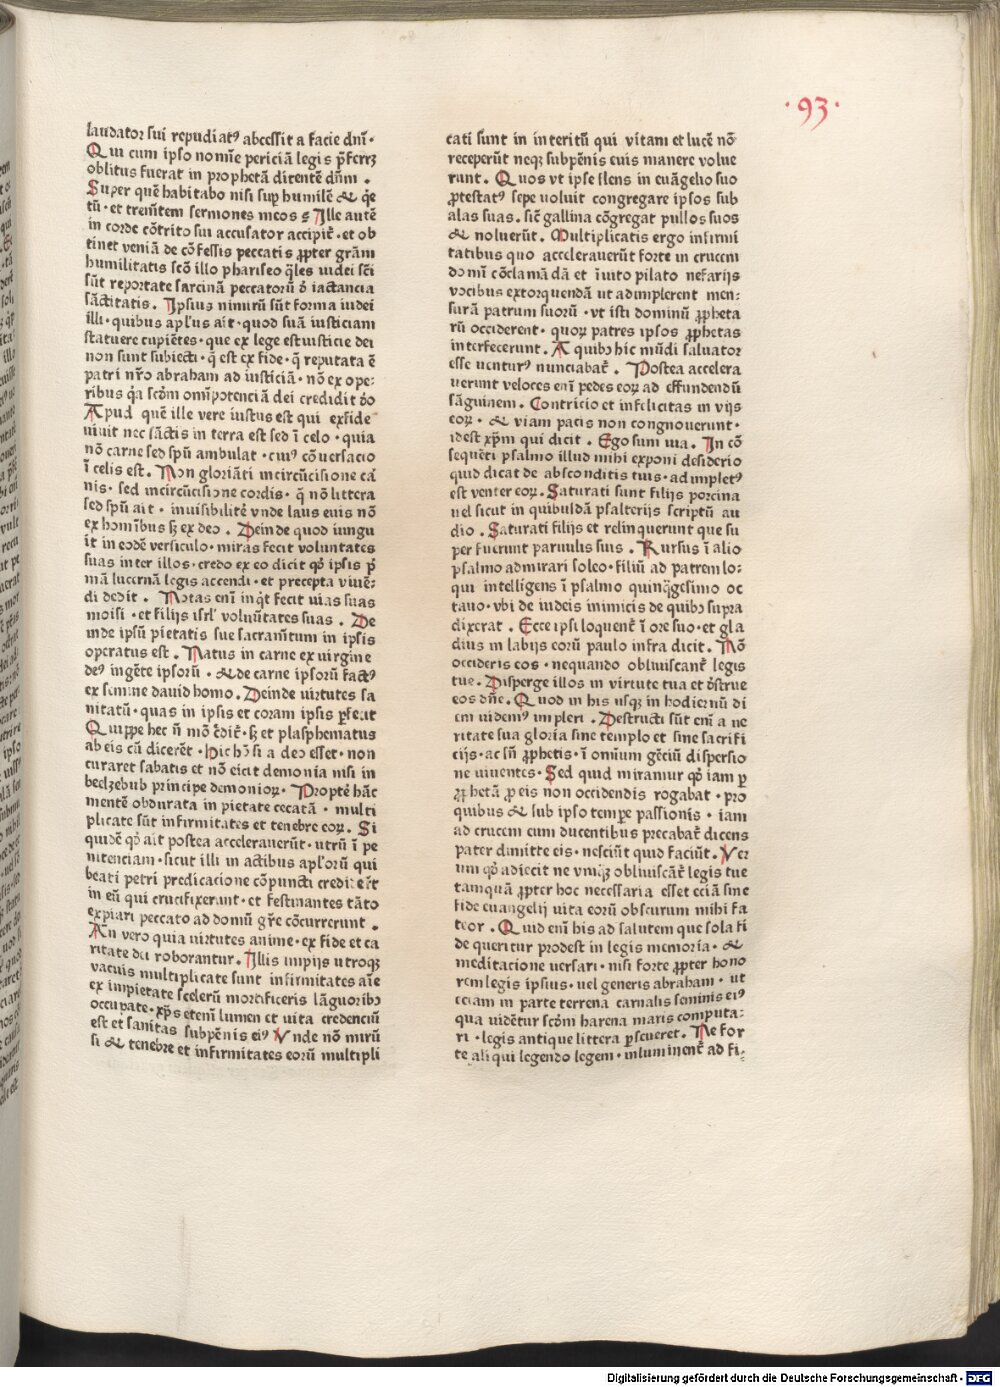 · 93 ·
laudator sui repudiatꝰ abcessit a facie dnī ·
Qui cum ipso nomīe periciā legis p̄ferrꝫ
oblitus fuerat in prophetā dicentē dn̄m .
Super quē habitabo nisi suꝑ humilē & q̄e
tū · et tremētem sermones meos ⁊ Ille autē
in corde cōtrito sui accusator accipit̄ · et ob
tinet veniā de cōfessis peccatis ꝓpter grām
humilitatis scō illo phariseo q̄les iudei sēi
sūt reportate sarcinā peccatorū ꝺ̄ iactancia
sāctitatis . Ipsius nimirū sūt forma iudei
illi · quibus apl'us ait · quod suā iusticiam
statuere cupiētes · que ex lege est iusticie dei
non sunt subiecti · q̄ est ex fide · q̄ reputata ē
patri nr̄o abraham ad iusticiā · nō ex ope:
ribus q̄a scōm om̄ipotenciā dei credidit ꝺ̄o
Apud quē ille vere iustus est qui ex fide
viuit nec sāctis in terra est sed ī celo · quia
nō carne sed spū ambulat · cuiꝰ cōuersacio
ī celis est . Non gloriāti incircūcisione ca
nis · sed incircūcisione cordis · q̄ nō littera
sed spū ait · inuisibilitē vnde laus euis nō
ex homībus sꝫ ex deo . Deinde quod iungu
it in eodē versiculo · miras fecit voluntates
suas inter illos · credo ex eo dicit qꝺ̄ ipsis p̄
mā lucernā legis accendi · et precepta viuē:
di dedit . Notas enī inq̄t fecit vias suas
moisi · et filijs isrl' volūtates suas . De
inde ipsū pietatis sue sacramētum in ipsis
operatus est . Natus in carne ex virgine
deꝰ ingēte ipsorū · & de carne ipsorū factꝰ
ex semine dauid homo . Deinde virtutes sa
nitatū · quas in ipsis et coram ipsis ꝑfecit
Quippe hec n̄ mō c̄dic̄t · sꝫ et plasphematus
ab eis cū dicerēt · hic hō si a deo esset · non
curaret sabatis et nō eicit demonia nisi in
beelzebub principe demonioꝝ . Propteꝛ hāc
mentē obdurata in pietate cecatā · multi
plicate sūt infirmitates et tenebre eoꝝ . Si
quidē qꝺ̄ ait postea accelerauerūt · utrū ī pe
nitenciam · sicut illi in actibus apl'orū qui
beati petri predicacione cōpuncti crediderūt
in eū qui crucifixerunt · et festinantes tāto
expiari peccato ad domū gr̄e cōcurrerunt .
An vero quia virtutes anime · ex fide et ca
ritate dei roborantur . Illis impijs utroqꝫ
vacuis multiplicate sunt infirmitates aīe
ex impietate scelerū mortiferis lāguoribꝰ
occupate · xp̄s etenī lumen et uita credenciū
est et sanitas sub pēnis eiꝰ Vnde nō mirū
si & tenebre et infirmitates eorū multipli
cati sunt in interitū qui vitam et lucē nō
receperūt neqꝫ sub pēnis euis manere volue
runt . Quos vt ipse flens in euāgelio suo
ꝓtestatꝰ sepe uoluit congregare ipsos sub
alas suas . sic̄ gallina cōgregat pullos suos
& noluerūt . Multiplicatis ergo infirmi
tatibus quo accelerauerūt forte in crucem
domī cōclamādā et īuito pilato nefarijs
vocibus extorquendā ut adimplerent men:
surā patrum suorū · vt isti dominū ꝓpheta
rū occiderent · quoꝝ patres ipsos ꝓphetas
interfecerunt . A quibꝰ hic mūdi saluator
esse uenturꝰ nunciabat̄ . Postea accelera
uerunt veloces enī pedes eoꝝ ad effundendū
sāguinem . Contricio et infelicitas in vijs
eoꝝ · & viam pacis non congnouerunt ·
id est xp̄m qui dicit . Ego sum uia . In cō
sequēti psalmo illud mihi exponi desiderio
quid dicat de absconditis tuis · adimpletꝰ
est venter eoꝝ . Saturati sunt filijs porcina
uel sicut in quibusdā psalterijs scriptū au
dio . Saturati filijs et relinquerunt que su
per fuerunt paruulis suis . Rursus ī alio
psalmo admirari soleo · filiū ad patrem lo:
qui intelligens ī psalmo quinq̄gesimo oc
tauo · vbi de iudeis inimicis de quibꝰ supra
dixerat . Ecce ipsi loquent̄ ī ore suo · et gla
dius in labijs eorū paulo infra dicit . Nō
occideris eos · nequando obliuiscant̄ legis
tue . Disperge illos in virtute tua et ꝺ̄strue
eos dn̄e . Quod in his usqꝫ in hodiernū di
em uidemꝰ impleri . Destructi sūt enī a ue
ritate sua gloria sine templo et sine sacrifi
cijs · ac sū ꝓphetis · ī omnium gēciū dispersio
ne uiuentes · Sed quid miramur qꝺ̄ iam ꝑ
ꝓphetā ꝓ eis non occidendis rogabat · pro
quibus & sub ipso tempe passionis · iam
ad crucem cum ducentibus precabat̄ dicens
pater dimitte eis · nesciūt quid faciūt . Ver
um qꝺ̄ adiecit ne vnūqꝫ obliuiscāt̄ legis tue
tamquā ꝓpter hoc necessaria esset eciā sine
fide euangelij uita eorū obscurum mihi fa
teor . Quid enī his ad salutem que sola fi
de queritur prodest in legis memoria · &
meditacione uersari · nisi forte ꝓpter hono
rem legis ipsius · uel generis abraham · ut
eciam in parte terrena carnalis seminis eiꝰ
qua uidētur scōm harena maris computa:
ri · legis antique littera ꝑseueret . Ne for
te aliqui legendo legem · inluminent̄ ad fi:
Digitalisierung gefördert durch die Deutsche Forschungsgemeinschaft - DFG